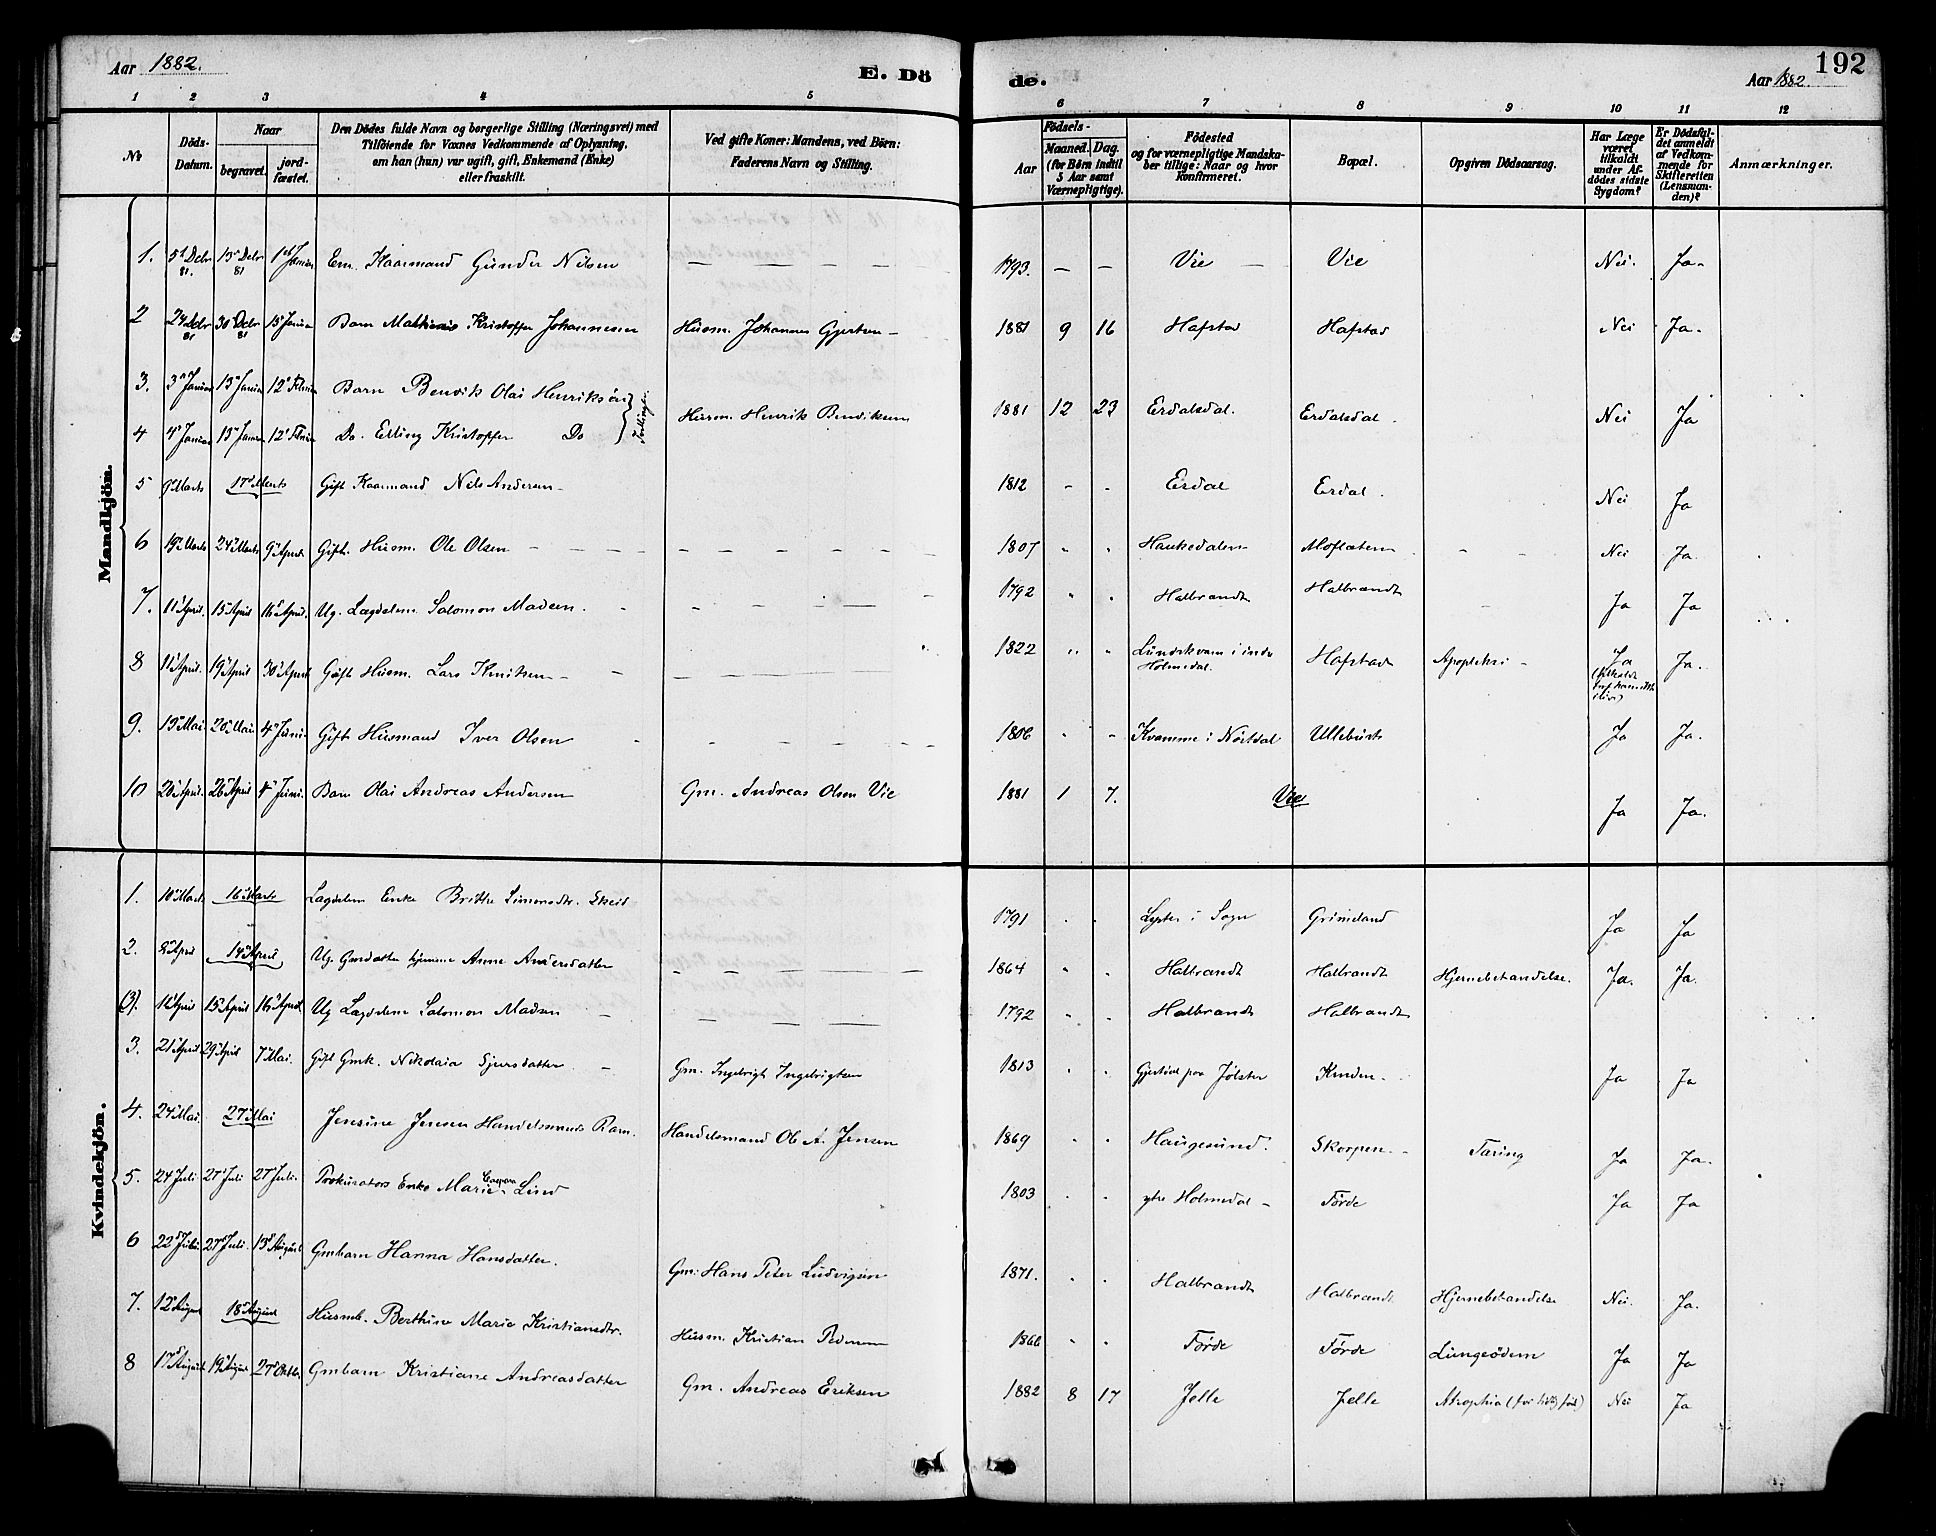 Aar 1882.
E. Dö
de.
Aar 1882.
192
1 2 3 4 5 6 7 8 9 10 11 12
No
Döds-Datum.
Naar
begravet.
jord-fæstet.
Den Dödes fulde Navn og borgerlige Stilling (Næringsvei) med
Tilföiende for Voxnes Vedkommende af Oplysning,
om han (hun) var ugift, gift, Enkemand (Enke)
eller fraskilt.
Ved gifte Koner: Mandens, ved Börn:
Faderens Navn og Stilling.
Födsels-
Aar
Maaned. Dag.
(for Börn indtil
5 Aar samt
Værnepligtige).
Födested
og for værnepligtige Mandska-
ber tillige: Naar og hvor
Konfirmeret.
Bopæl.
Opgiven Dödsaarsag.
Har Læge
været
tilkaldt
under Af-
dödes sidste
Sygdom?
Er Dödsfal-
det anmeldt
af Vedkom-
mende for
Skifteretten
(Lensman-
den)?
Anmærkninger.
Mandkjön.
1. 5 Decbr 81. 13 Decbr 81 1st Januar Em. Kaarmand Gunder Nilsen — — — — 1793. — — Vie — Vie Nei. Ja.
2 24 Decbr 81 30 Decbr 81 15 Januar Barn Mathias Kristoffer Johannesen Husm. Johannes Gjertsen — 1881 9 16 Hafstad Hafstad Nei Ja.
3. 3 Januar 13 Januar 12 Februar Barn Benvik Olai Henriksön
Tvillinger
Husm. Henrik Bendiksen 1881 12 23 Erdalsdal. Erdalsdal. Nei Ja
4 4 Januar 13 Januar 12 Februar Do. Elling Kristoffer Do
5 9 Marts 17 Marts Gift Kaarmand Nils Andersen 1812 - - Erdal Erdal. Nei Ja
6 19 Marts 24 Marts 9 April Gift Husm. Ole Olsen 1807 " " Haukedalen Moflaten Nei Ja.
7. 11 April. 15 April 16 April. Ug. Lægdslem Salomon Madsen. 1792 " " Halbrandt Halbrandt Ja Ja
8 11 April. 19 April 30 April Gift Husm. Lars 1822 " " Lundekvam i indr Holmedal. Hafstad Apopleksi - Ja Ja.
9. 13 Mai. 20 Mai 4 Juni Gift Husmand Iver Olsen 1806 " " Kvamme i Nöstdal Ullebust Ja Ja.
10 20 April. 26 April 4 Juni. Barn Olai Andreas Andersen Gm. Andreas Olsen Vie 1881 1 7. Vie Ja Ja.
Kvindekjön.
1. 10 Marts 16 Marts Lægdslem Enke Brithe Simonsdtr. Skeid 1791 . . Lyster i Sogn Grimeland Ja Ja
2. 2 April 14 April Ug. Gmdatter hjemme Anne Andersdatter 1864 " " Halbrandt Halbrandt Hjernebetændelse. Ja. Ja.
(3). 11 April 15 April 16 April. Ug Lægdslem Salomon Madsen 1792 " " Halbrandt Halbrandt
3. 21 April 29 April 7 Mai. Gift Gmk. Nikolaia Sjursdatter Gm. Ingebrigt Ingebrigtsen 1813 " " paa Jölster Ja Ja
4. 24 Mai. 27 Mai Jensine Jensen Handelsmands Barn. Handelsmand Ole A. Jensen 1869 " " Haugesund. Skorpen. Tæring Ja Ja.
5. 24 Juli 27 Juli 27 Juli. Prokurators Enke Marie Caspara Lind 1803 . . ytre Holmedal - Förde Ja Ja
6 22 Juli. 27 Juli. 13 August Gmbarn Hanna Hansdatter. Gm: Hans Peter Ludvigsen 1871. . . Halbrandt Halbrandt Hjernebetændelse Nei. Ja.
7. 12 August 18 August Husmb. Berthine Marie Kristiansdtr. Husm. Kristian Pedersen 1866 " " Förde Förde Lungeödem Ja Ja
8 17 August 19 August 27 Oktbr. Gmbarn Kristiane Andreasdatter Gm. Andreas Eriksen 1882 8 17 Jelle Jelle Atrophia (for tidlig föd) Nei Ja